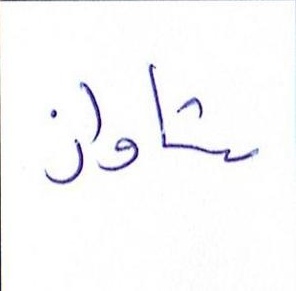 شاواز